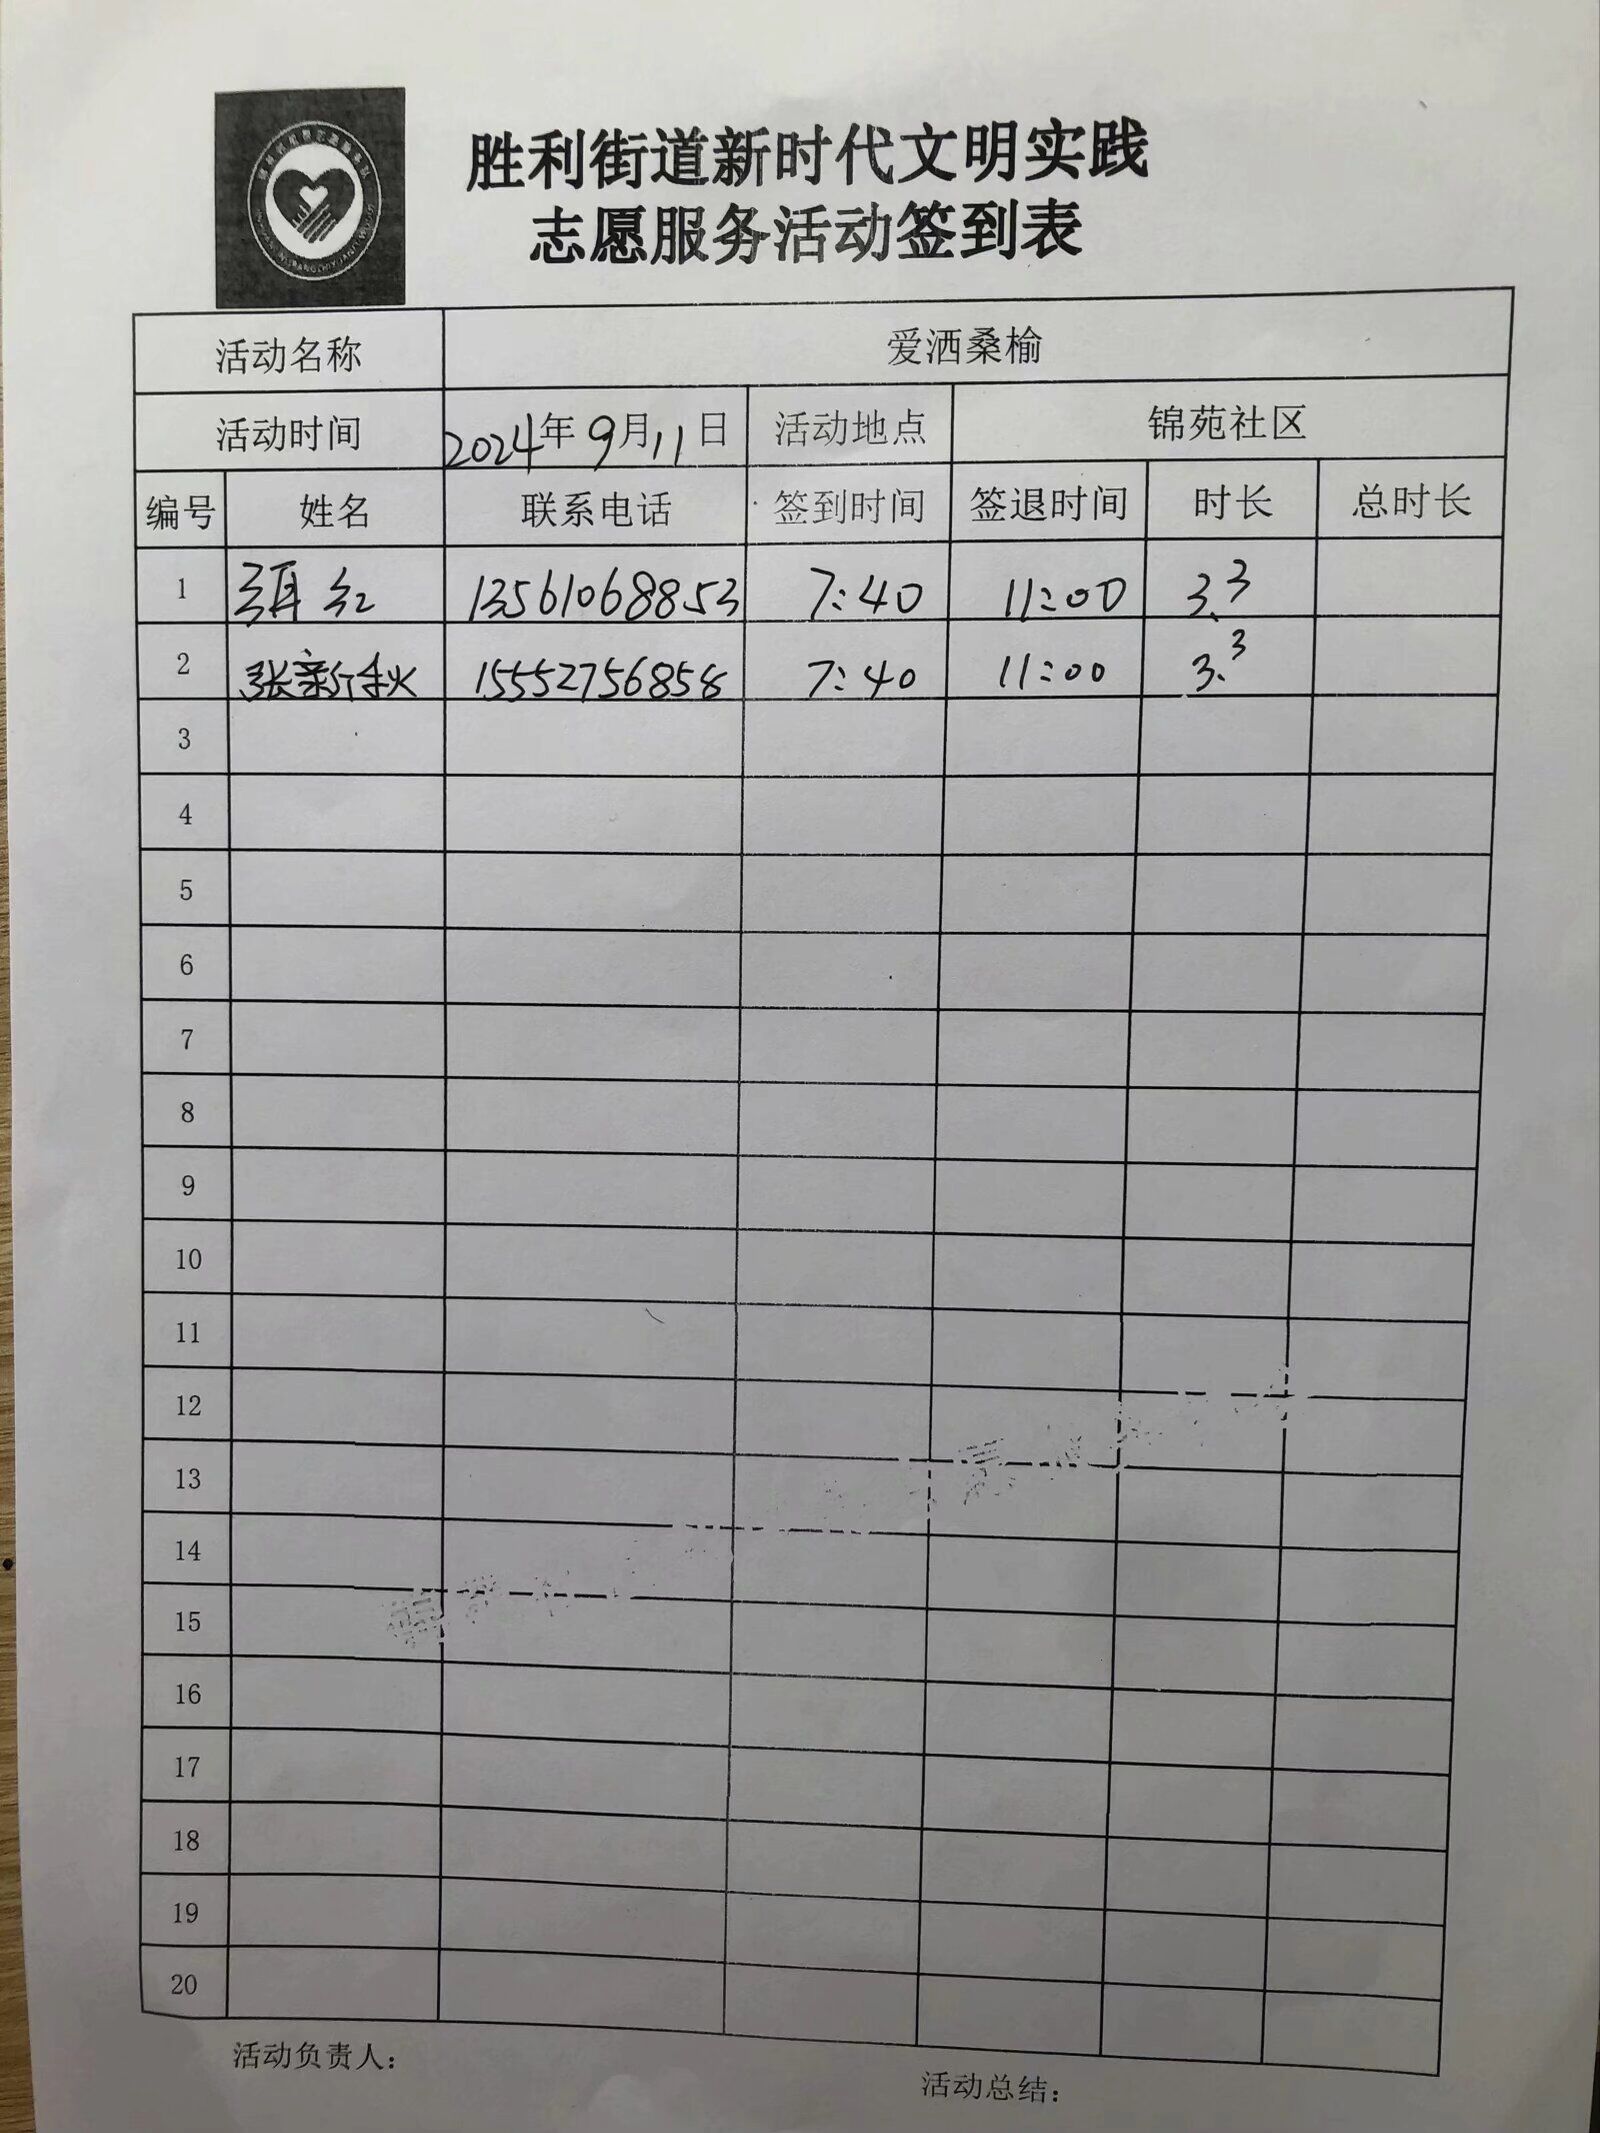 胜利街道新时代文明实践
志愿服务活动签到表
活动名称 爱洒桑榆
活动时间 2024年9月11日 活动地点 锦苑社区
编号 姓名 联系电话 签到时间 签退时间 时长 总时长
1 红 13561068853 7:40 11:00 3.3
2 张新秋 15552756858 7:40 11:00 3.3
3
4
5
6
7
8
9
10
11
12
13
14
15
16
17
18
19
20
活动负责人：
活动总结：